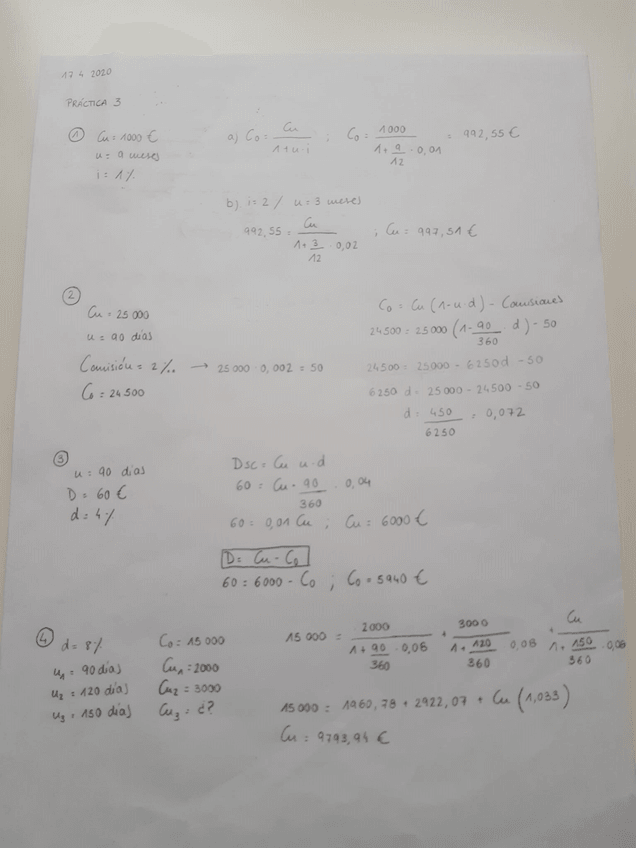 17 4 2020
PRÁCTICA 3
① Cn = 1000 €
n = 9 meses
i = 1%
a) Co = Cn / 1+n·i ; Co = 1000 / 1+ 9/12 · 0,01 = 992,55 €
b) i = 2% n = 3 meses
992,55 = Cn / 1+ 3/12 · 0,02 ; Cn = 997,51 €
②
Cn = 25 000
n = 90 días
Comisión = 2‰ → 25 000 · 0,002 = 50
Co = 24 500
Co = Cn (1-n·d) - Comisiones
24 500 = 25 000 (1- 90/360 · d) - 50
24 500 = 25 000 - 6250d - 50
6250 d = 25 000 - 24 500 - 50
d = 450 / 6250 = 0,072
③
n = 90 días
D = 60 €
d = 4%
Dsc = Cn n·d
60 = Cn · 90/360 · 0,04
60 = 0,01 Cn ; Cn = 6000 €
D = Cn - Co
60 = 6000 - Co ; Co = 5940 €
④ d = 8%
n1 = 90 días
n2 = 120 días
n3 = 150 días
Co = 15 000
Cn1 = 2000
Cn2 = 3000
Cn3 = ¿?
15 000 = 2000 / 1+ 90/360 · 0,08 + 3000 / 1+ 120/360 0,08 + Cn / 1+ 150/360 · 0,08
15 000 = 1960,78 + 2922,07 + Cn (1,033)
Cn = 9793,94 €